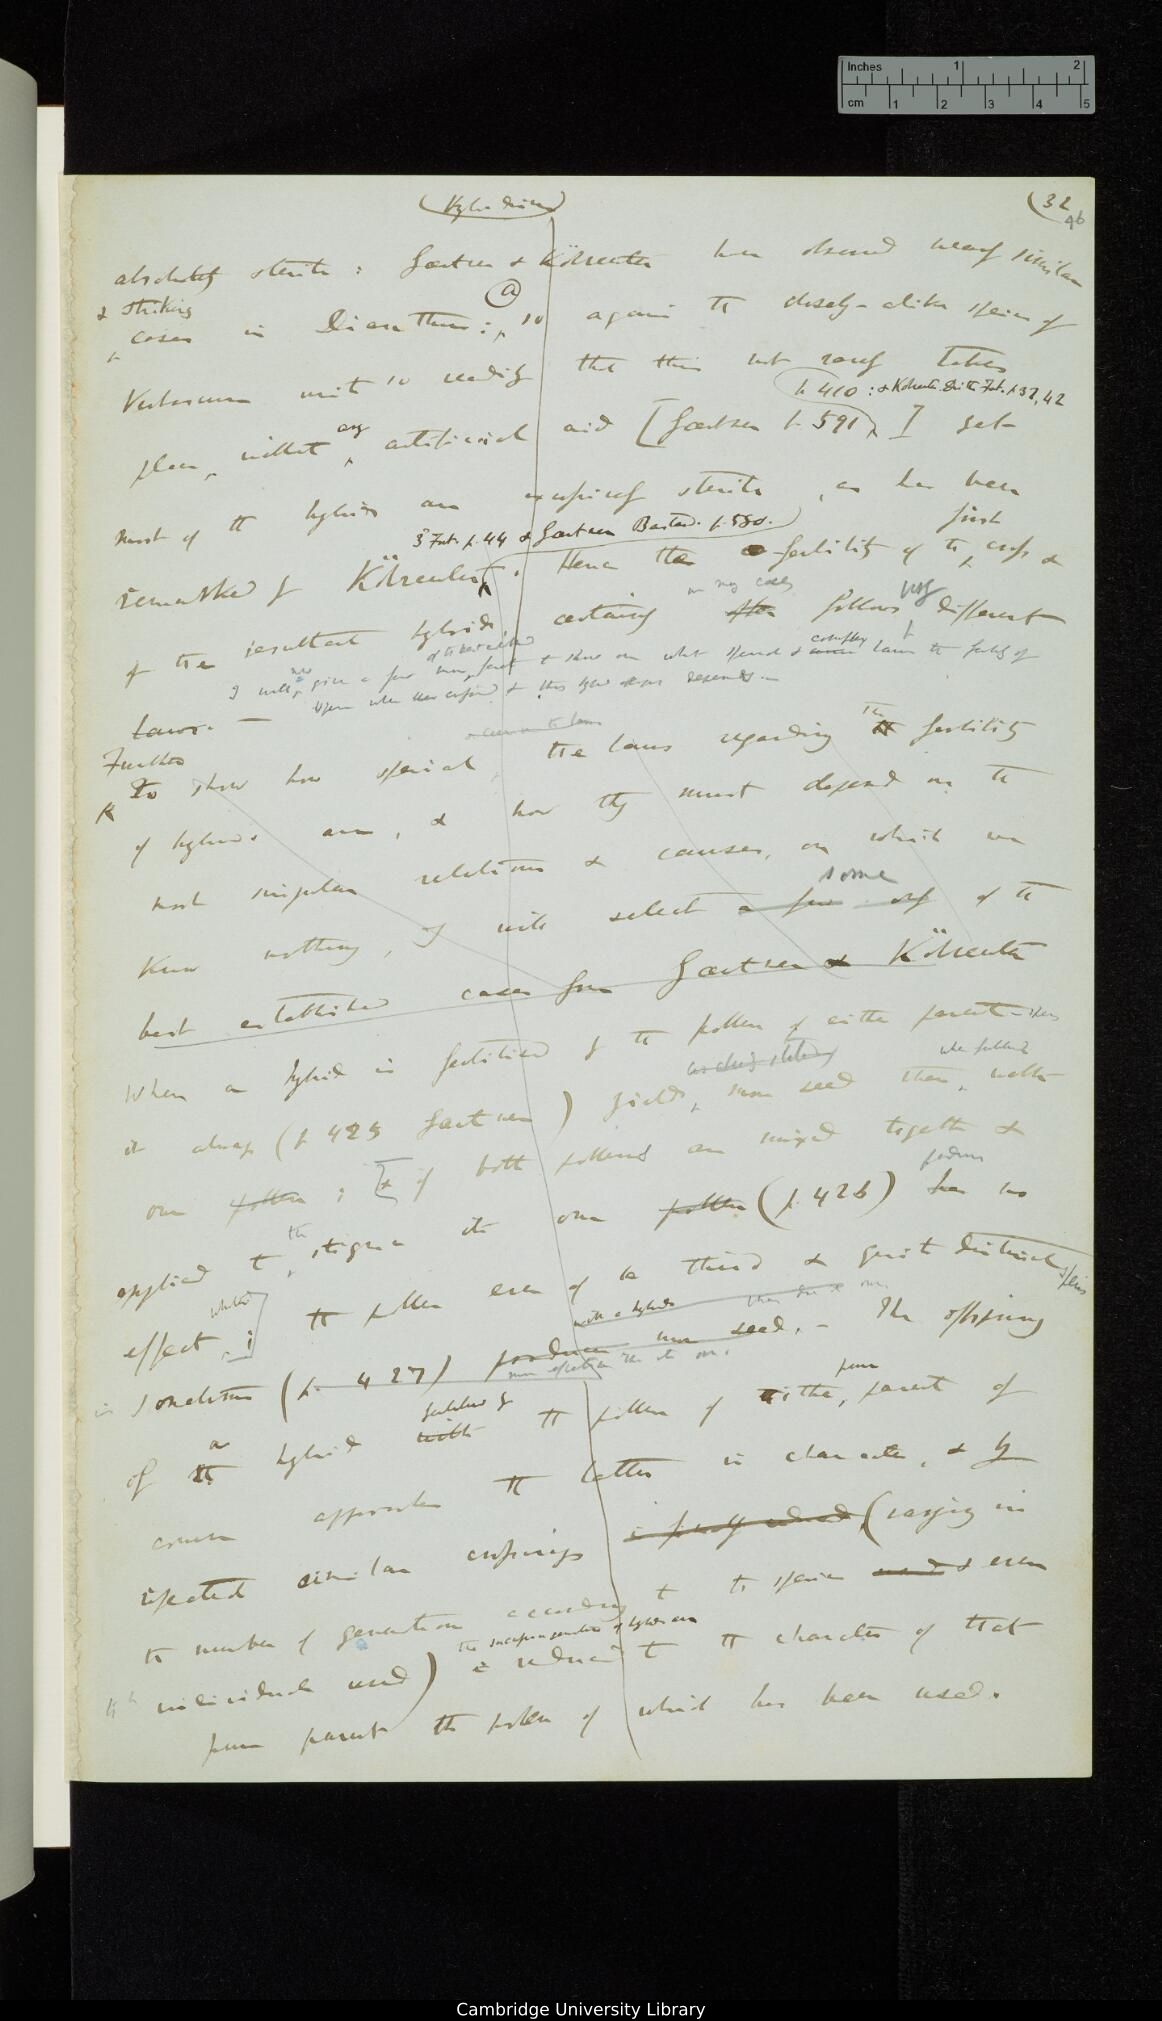 Inches 1 2
cm 1 2 3 4 5
(Hybridism)
(32
46
absolutely sterile: Gærtner & Kölreuter have observed nearly similar
& striking
cases in Dianthus: so again the closely-alike species of
(a)
Verbascum unite so readily that this not rarely takes
p. 410: & Kölreuter Dritte Fort. p. 37, 42
place, without any artificial aid [Gærtner p. 591] yet
most of the hybrids are excessively sterile, as has been
3 Fort. p. 44 & Gærtner Bastard. p. 580.
remarked by Kölreuter. Hence the fertility of the first cross &
in many cases
of the resultant hybrids certainly often follows very different
I will now give a few more facts & show on what special & complex laws the fertility of
laws. —
Further
To show how special the laws regarding the fertility
of hybrids are, & how they must depend on the
most singular relations & causes, on which we
some
know nothing, I will select a few only of the
best established cases from Gærtner & Kölreuter
When a hybrid is fertilised by the pollen of either parent-species
it always (p 425 Gærtner) yields more seed than with
own pollen; & if both pollens are mixed together &
applied to the stigma its own pollen (p. 426) has no
produces
effect; the pollen even of a third & quite distinct species
whether
is sometimes (p. 427) produces more seed. — The offspring
of a hybrid with the pollen of either pure parent of
fertilised by
course approaches the latter in character, & by
repeated similar crossings (varying in
the number of generations according to the species used & even
the successive generation of hybrids are
individuals used) is reduced to the character of that
pure parent the pollen of which has been used.
Cambridge University Library